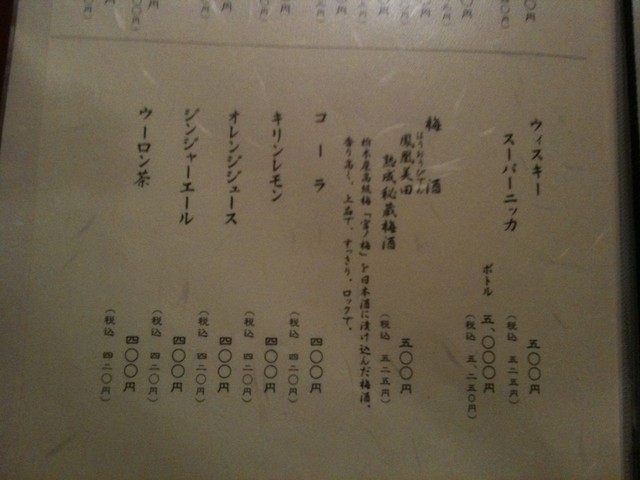 ウィスキー
スーパーニッカ
五〇〇円
(税込 五二五円)
ボトル 五、〇〇〇円
(税込 五、二五〇円)
梅酒
ほうおうびでん
鳳凰美田
熟成秘蔵梅酒
五〇〇円
(税込 五二五円)
栃木産高級梅「宮ノ梅」を日本酒に漬け込んだ梅酒。
香り高く、上品で、すっきり。ロックで。
コーラ
四〇〇円
(税込 四二〇円)
キリンレモン
四〇〇円
(税込 四二〇円)
オレンジジュース
四〇〇円
(税込 四二〇円)
ジンジャーエール
四〇〇円
(税込 四二〇円)
ウーロン茶
四〇〇円
(税込 四二〇円)